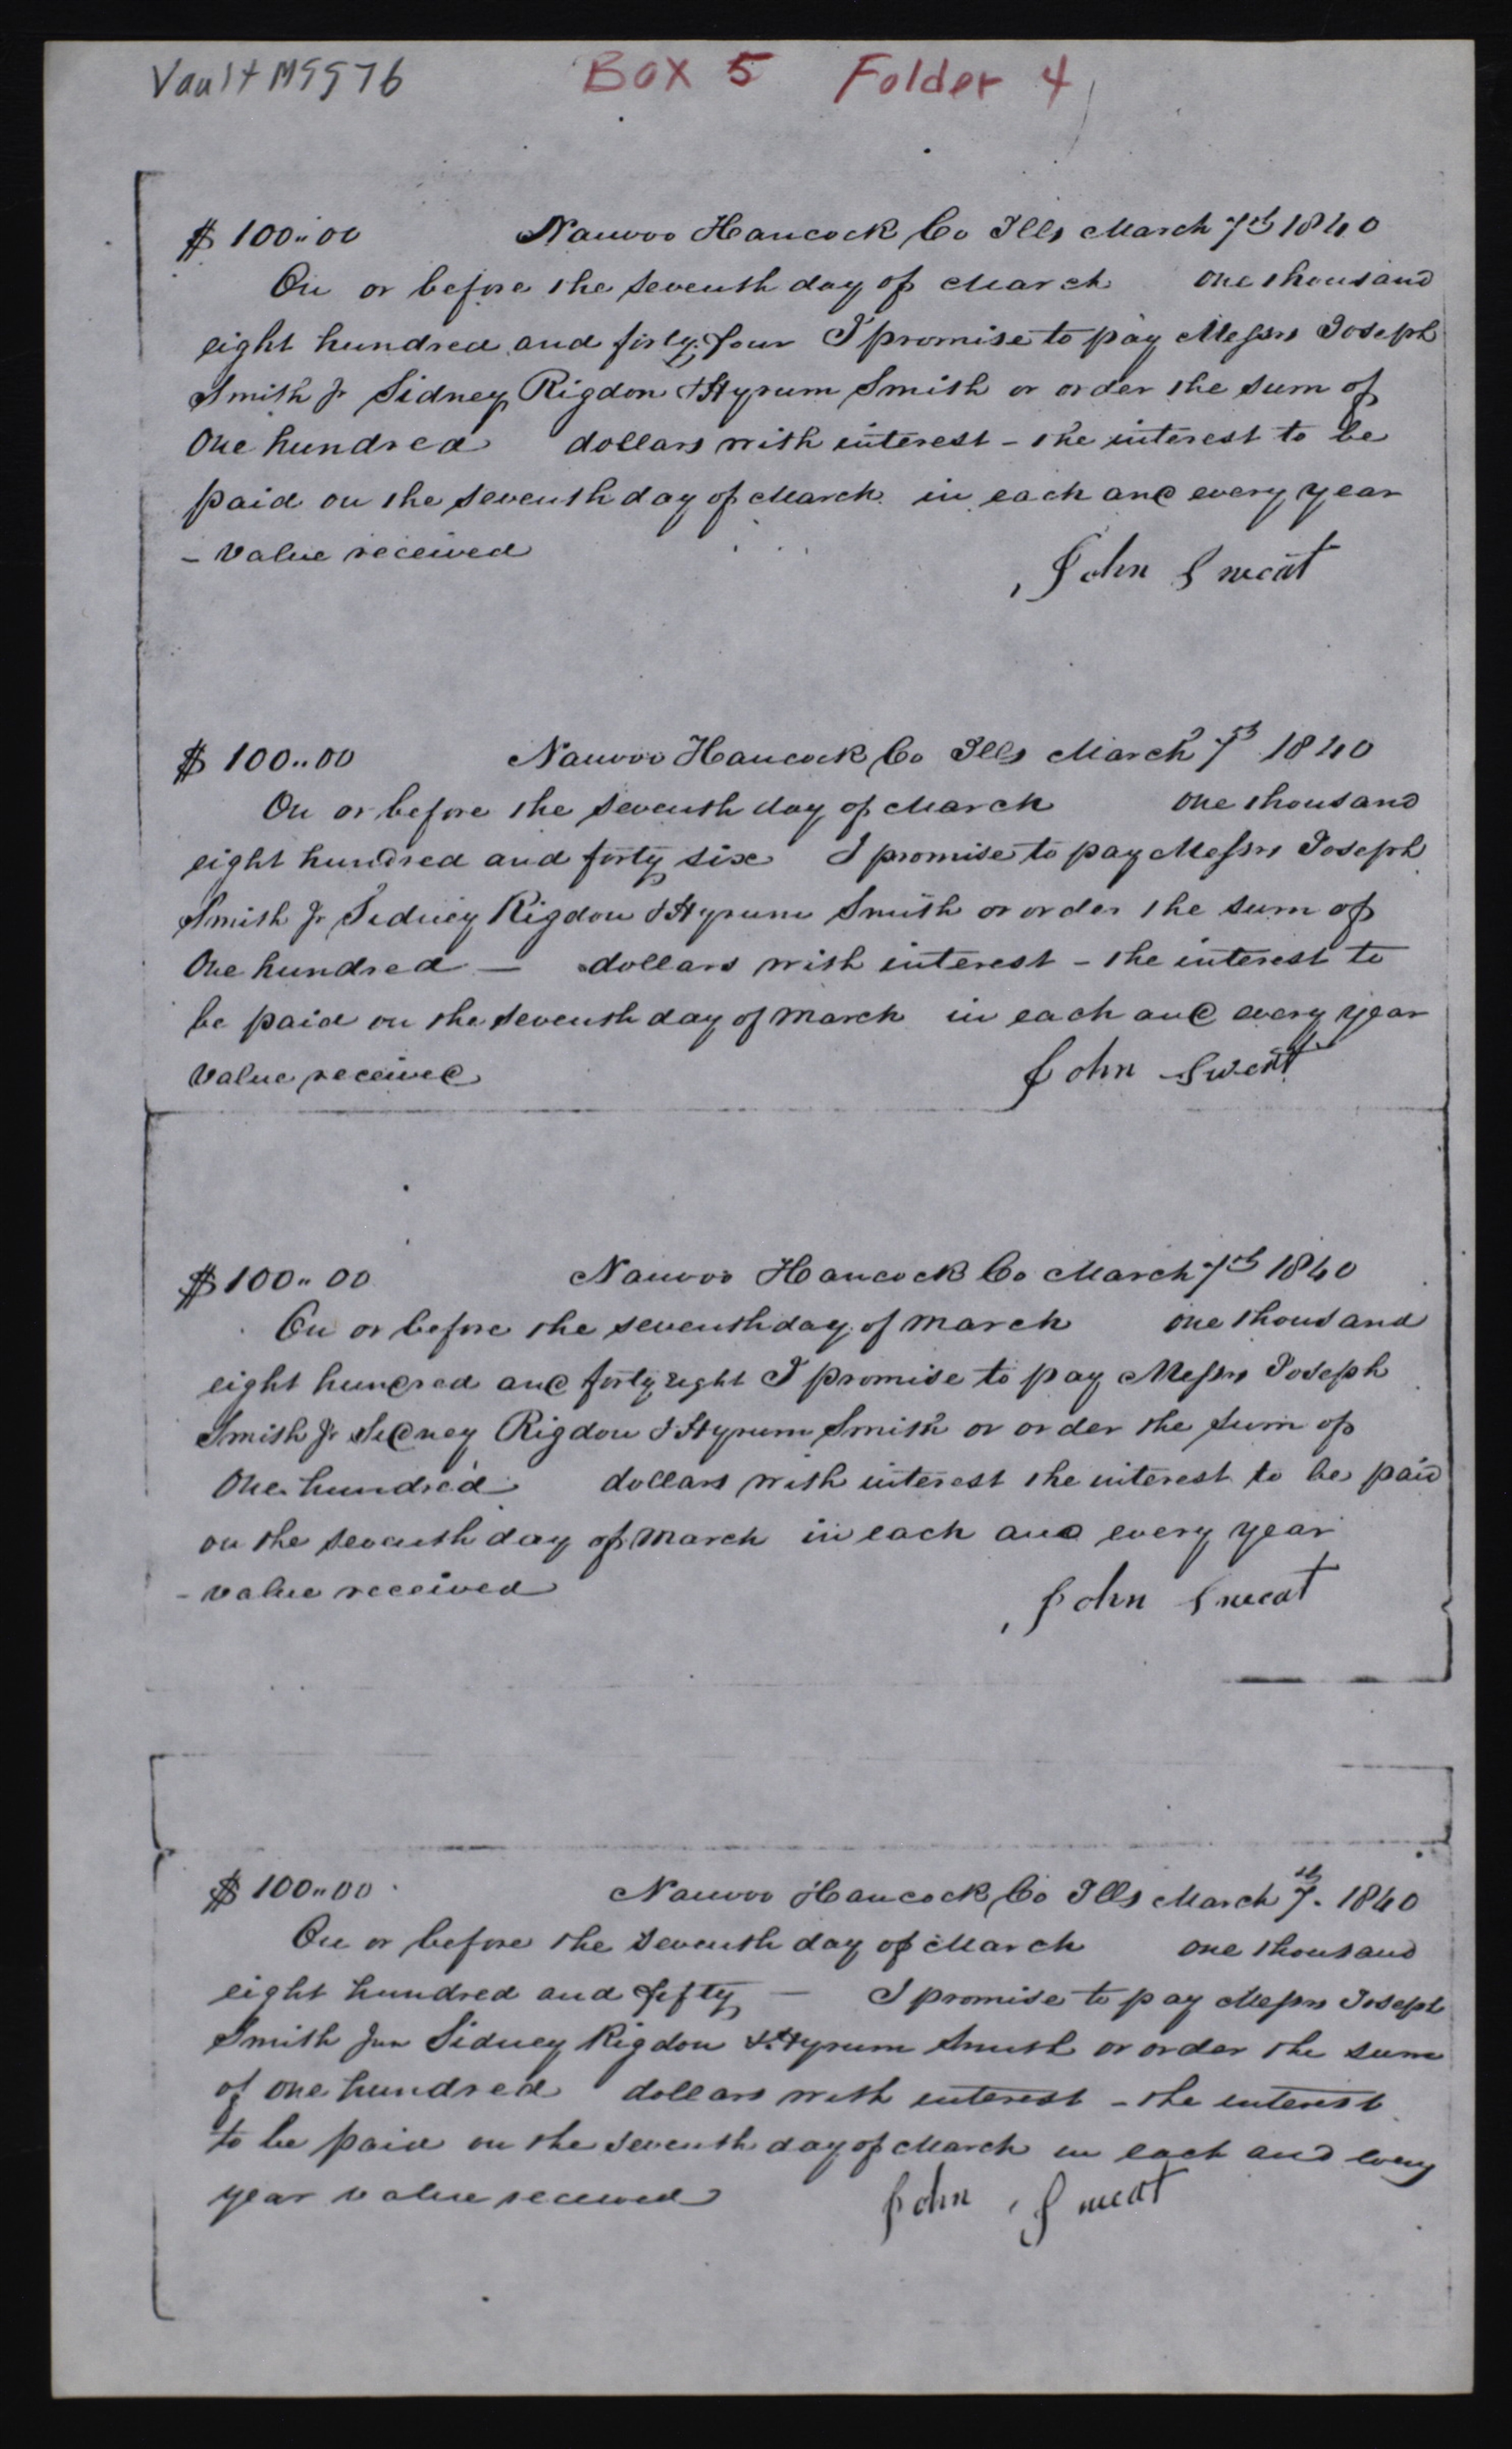 Vault MSS 76 Box 5 Folder 4
$ 100..00 Nauvoo Hancock Co Ills March 7th 1840
On or before the seventh day of March one thousand
eight hundred and forty four I promise to pay Messrs Joseph
Smith Jr Sidney Rigdon & Hyrum Smith or order the sum of
One hundred dollars with interest - the interest to be
paid on the seventh day of March in each and every year
- Value received
John Sweat
$ 100..00 Nauvoo Hancock Co Ills March 7th 1840
On or before the seventh day of March one thousand
eight hundred and forty six I promise to pay Messrs Joseph
Smith Jr Sidney Rigdon & Hyrum Smith or order the sum of
One hundred — dollars with interest - the interest to
be paid on the seventh day of March in each and every year
Value received
John Sweat
$ 100..00 Nauvoo Hancock Co March 7th 1840
On or before the seventh day of March one thousand
eight hundred and forty eight I promise to pay Messrs Joseph
Smith Jr Sidney Rigdon & Hyrum Smith or order the sum of
One hundred dollars with interest the interest to be paid
on the seventh day of March in each and every year
- value received
John Sweat
$ 100..00 Nauvoo Hancock Co Ills March 7th. 1840
On or before the seventh day of March one thousand
eight hundred and fifty — I promise to pay Messrs Joseph
Smith Jun Sidney Rigdon & Hyrum Smith or order the sum
of one hundred dollars with interest - the interest
to be paid on the seventh day of March in each and every
year value received
John Sweat